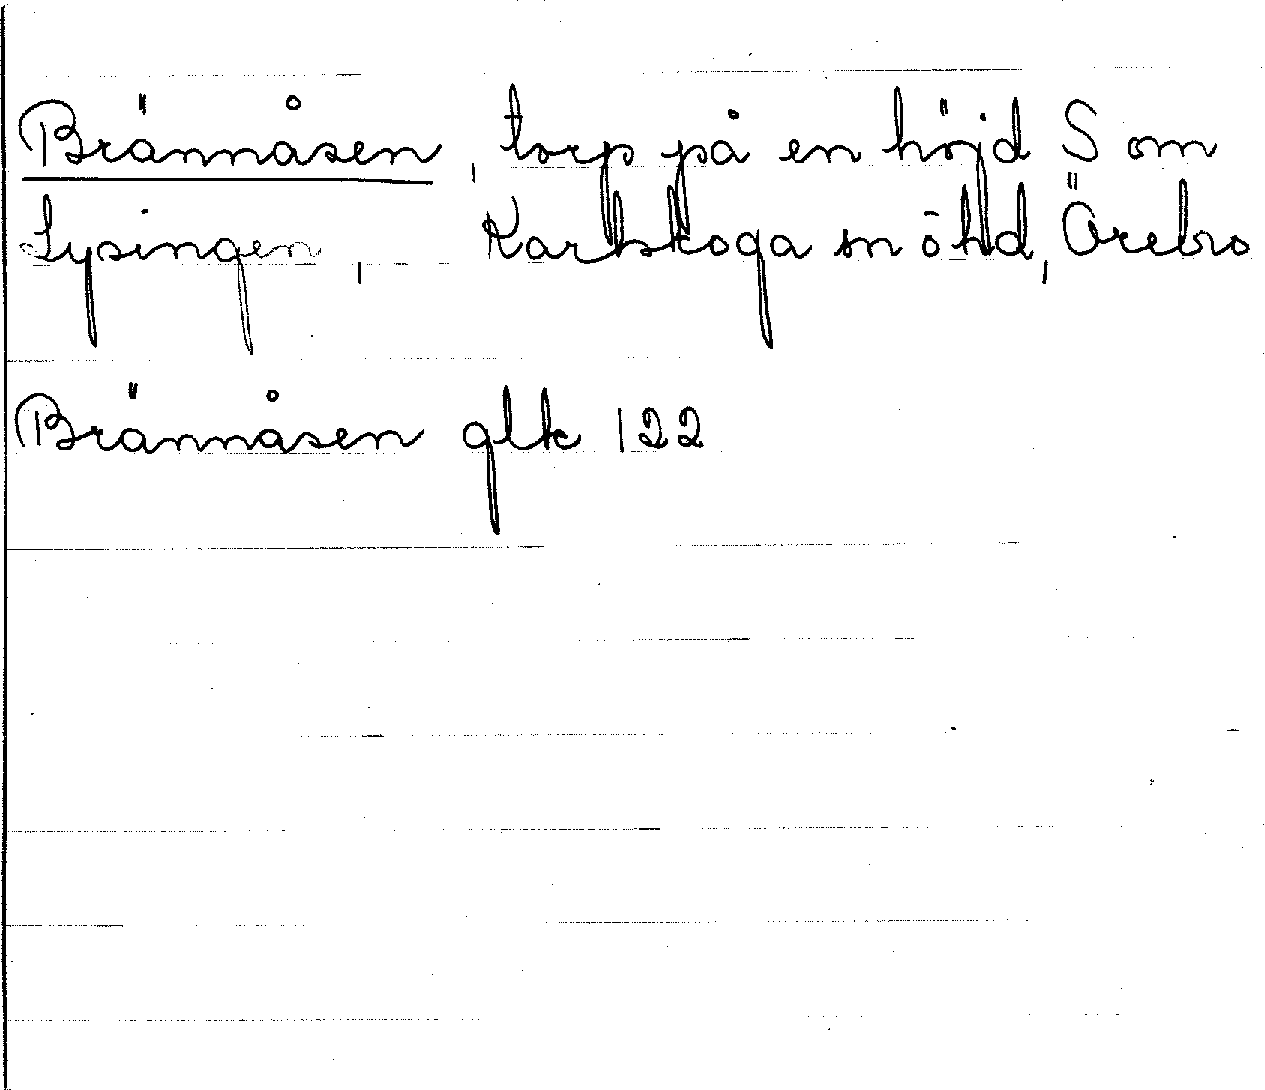 Brännåsen, torp på en höjd S om
Lysingen, Karlskoga sn o hd, Örebro
Brännåsen glk 122